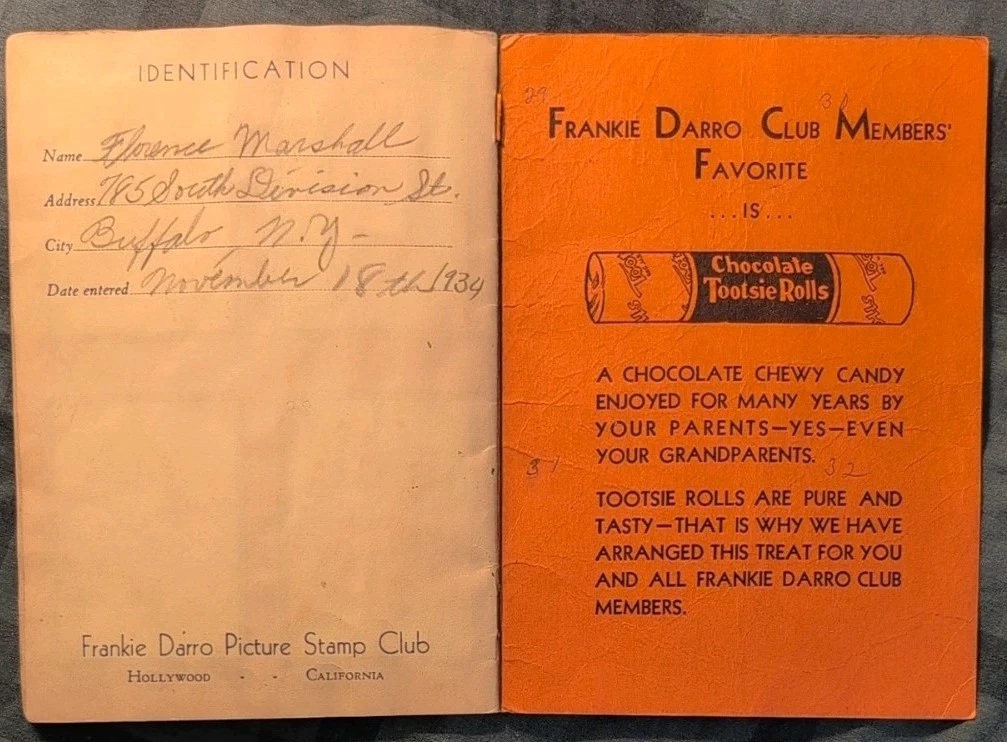 IDENTIFICATION
Name Florence Marshall
Address 785 South Division St.
City Buffalo, N.Y-
Date entered November 18th 1934
Frankie Darro Picture Stamp Club
HOLLYWOOD - - CALIFORNIA
29
FRANKIE DARRO CLUB MEMBERS'
FAVORITE
...IS...
Chocolate
Tootsie Rolls
A CHOCOLATE CHEWY CANDY
ENJOYED FOR MANY YEARS BY
YOUR PARENTS—YES—EVEN
YOUR GRANDPARENTS.
31 32
TOOTSIE ROLLS ARE PURE AND
TASTY—THAT IS WHY WE HAVE
ARRANGED THIS TREAT FOR YOU
AND ALL FRANKIE DARRO CLUB
MEMBERS.